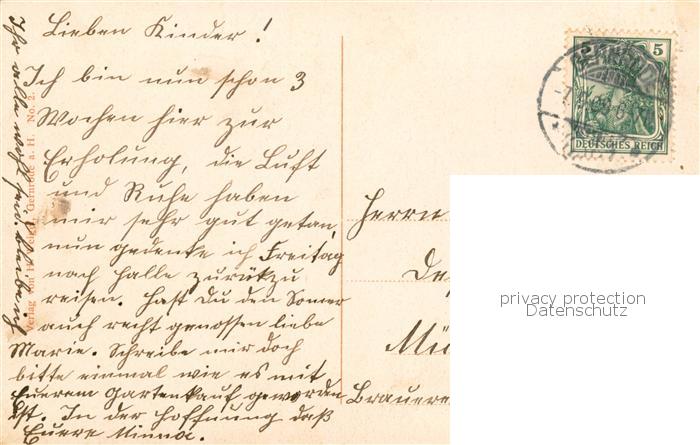 Lieben Kinder!
Ich bin nun schon 3
Wochen hier zur
Erholung, die Luft
und Ruhe haben
mir sehr gut getan,
nun gedenke ich Freitag
nach Halle zurükzu
reisen. Hast Du den Somer
auch recht genossen liebe
Marie. Schreibe mir doch
bitte einmal wie es mit
Euerem Gartenkauf geworden
ist. In der Hoffnung daß
Ihr alle wohl seid. bleibe ich
Euere Minna.
Verlag von Gernrode a. H. No. 2.
5 5
DEUTSCHES REICH
GERNRODE
Herrn
De
Mü
Brauere
privacy protection
Datenschutz